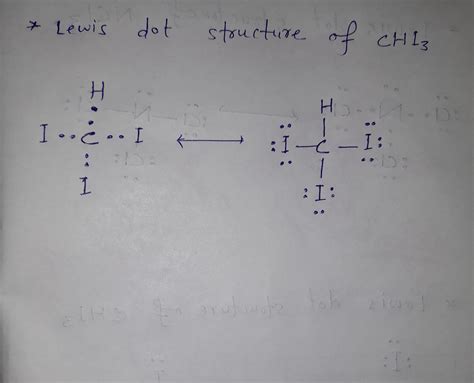 * Lewis dot structure of CHI3
H H
I •• C •• I ⟷ :I — C — I:
I :I: